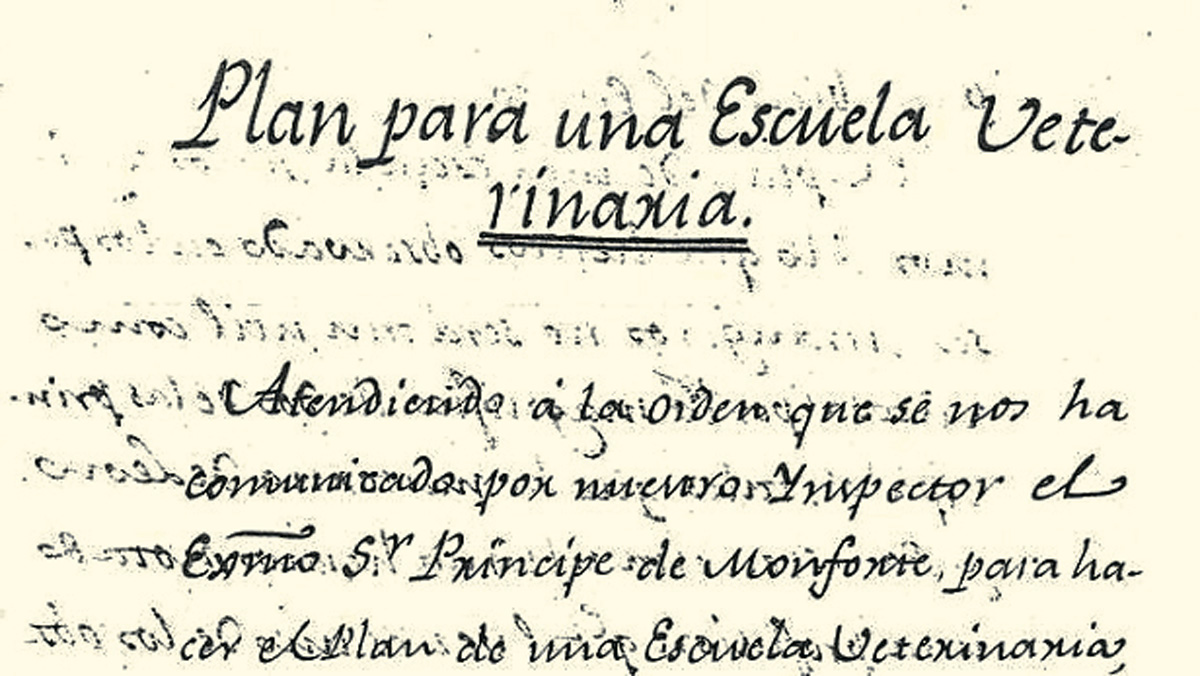 Plan para una Escuela Vete-
rinaria.
Atendiendo á la orden que se nos ha
comunicado por nuestro Ynspector el
Exmo Sr Principe de Monforte, para ha-
cer el Plan de una Escuela Veterinaria,